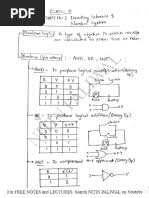 CLASS - 11
CHAPTER-2 Encoding Schemes &
Number System
Boolean Logic
A type of algebra in which results
are calculated as either True or False
Boolean Operators
AND, OR, NOT
AND - To perform logical multiplication (Binary Op.)
X Y X·Y
0 0 0
0 1 0
1 0 0
1 1 1
OR - To perform logical addition (Binary Op.)
X Y X+Y
0 0 0
0 1 1
1 0 1
1 1 1
NOT - To complement
For FREE NOTES and LECTURES- Search NITIN PALIWAL on Youtube